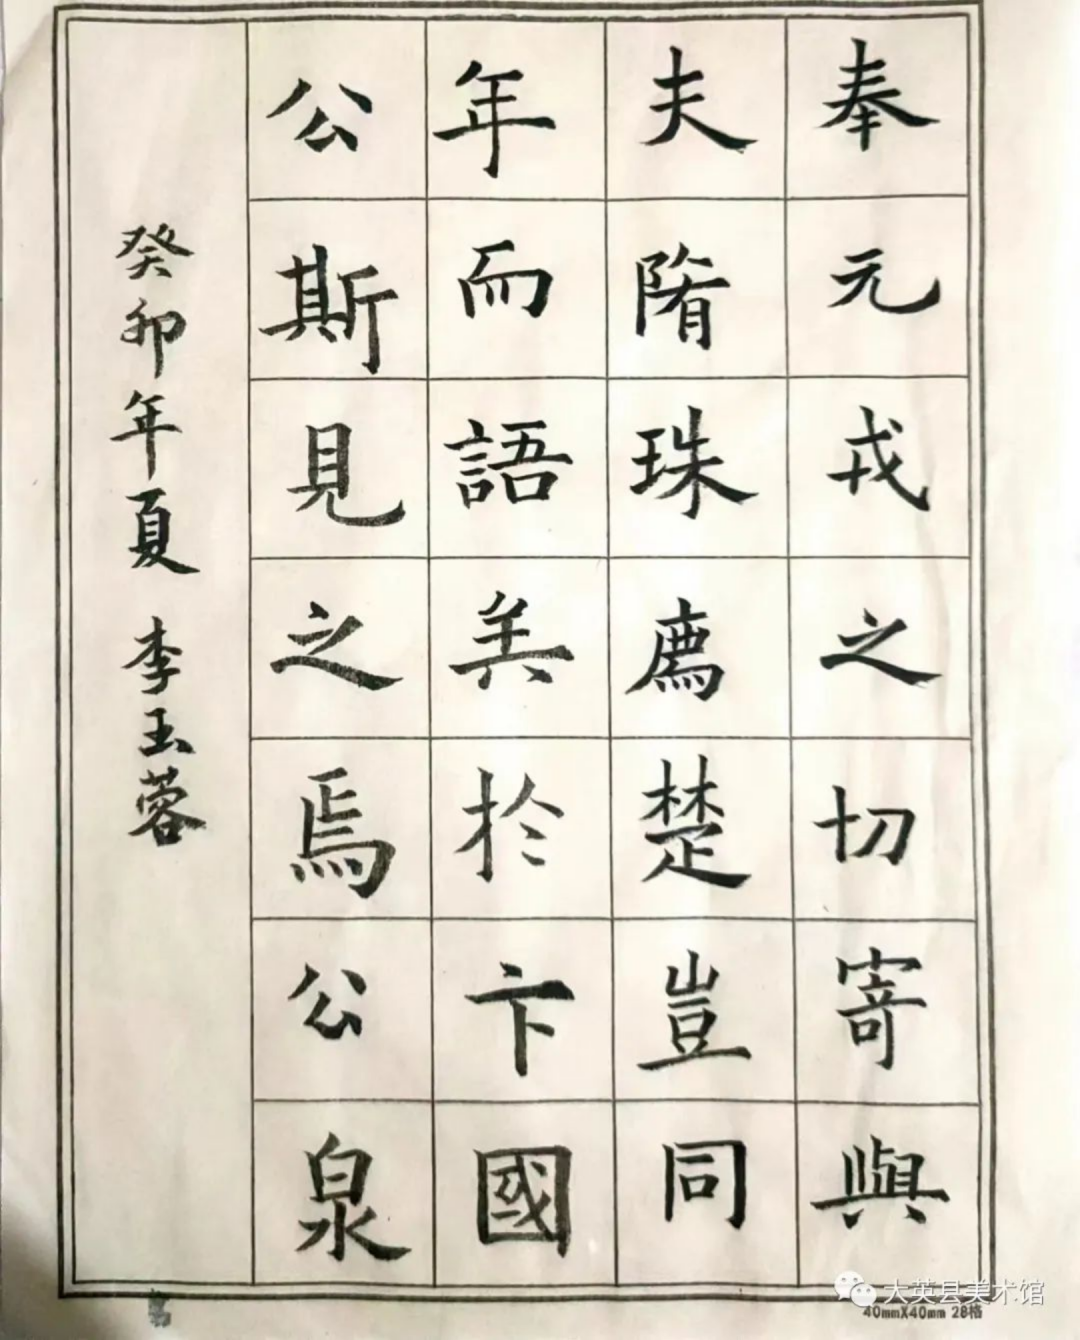 奉元戎之切寄與
夫隋珠薦楚豈同
年而語美於卞國
公斯見之焉公泉
癸卯年夏 李玉蓉
大英县美术馆
40mmX40mm 28格